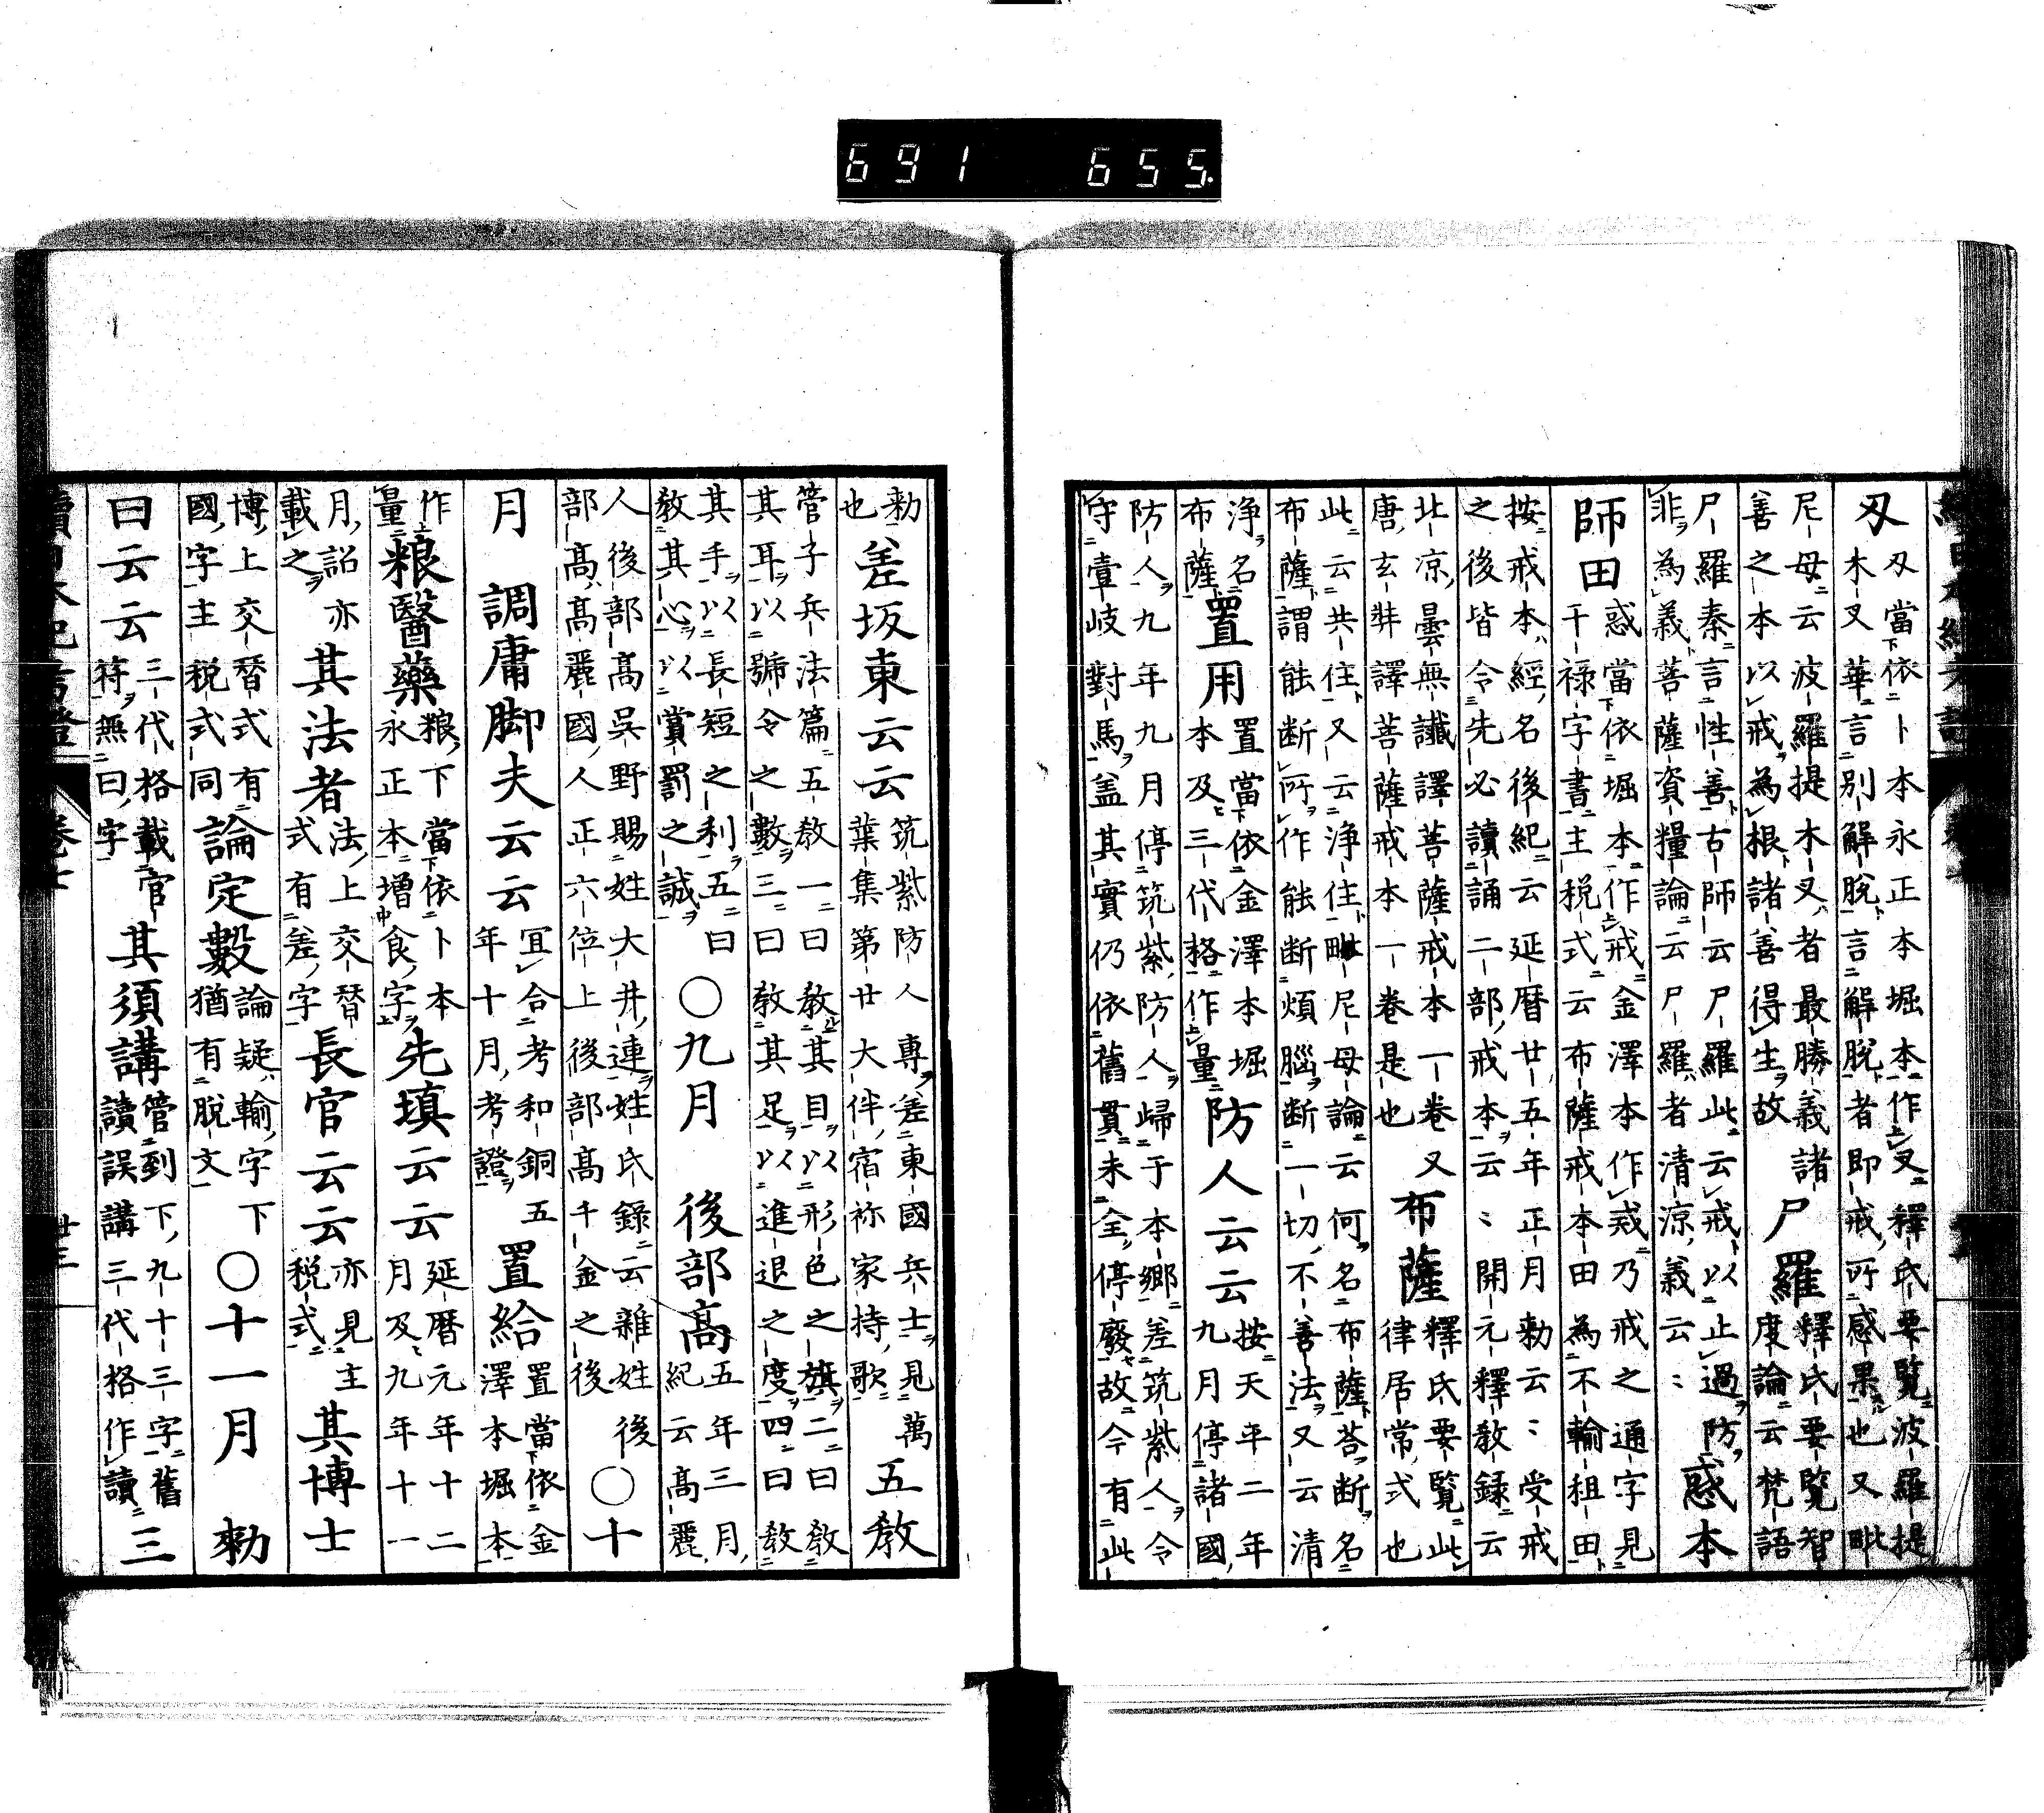 691 655.
刄 刄當依卜本永正本堀本作叉釋氏要覽波羅提
木叉華言別解脫言解脫者即戒所感果也又毗
尼母云波羅提木叉者最勝義諸
善之本以戒為根諸善得生故 尸羅 釋氏要覽智
度論云梵語
尸羅秦言性善古師云尸羅此云戒以止過防
非為義菩薩資糧論云尸羅者清涼義云〻 惑本
師田 惑當依堀本作戒金澤本作戒乃戒之通字見
干祿字書主税式云布薩戒本田為不輸租田
按戒本經名後紀云延暦廿五年正月勅云〻受戒
之後皆令先必讀誦二部戒本云〻開元釋教録云
北凉曇無讖譯菩薩戒本一卷又
唐玄奘譯菩薩戒本一卷是也 布薩 釋氏要覽此
律居常式也
此云共住又云淨住毗尼母論云何名布薩荅断名
布薩謂能断所作能断煩腦断一切不善法又云清
淨名
布薩 置用 置當依金澤本堀
本及三代格作量 防人云云 按天平二年
九月停諸國
防人九年九月停筑紫防人歸于本鄉差筑紫人令
守壹岐對馬盖其實仍依舊貫未全停廢故今有此
勅
也 差坂東云云 筑紫防人專差東國兵士見萬
葉集第廿大伴宿祢家持歌 五教
管子兵法篇五教一曰教其目以形色之旗二曰教
其耳以號令之數三曰教其足以進退之度四曰教
其手以長短之利五曰
教其心以賞罰之誠 〇九月 後部高 五年三月
紀云高麗
人後部高吳野賜姓大井連姓氏録云雜姓後
部高高麗國人正六位上後部高千金之後 〇十
月 調庸脚夫云云 宜合考和銅五
年十月考證 置給 置當依金
澤本堀本
作
量 粮醫藥 粮下當依卜本
永正本增食字 先填云云 延暦元年十二
月及九年十一
月詔亦
載之 其法者 法上交替
式有差字 長官云云 亦見主
税式 其博士
博上交替式有
國字主税式同 論定數 論疑輸字下
猶有脫文 〇十一月 勅
曰云云 三代格載官
符無曰字 其須講 管到下九十三字舊
讀誤講三代格作讀 三
卷
廿三